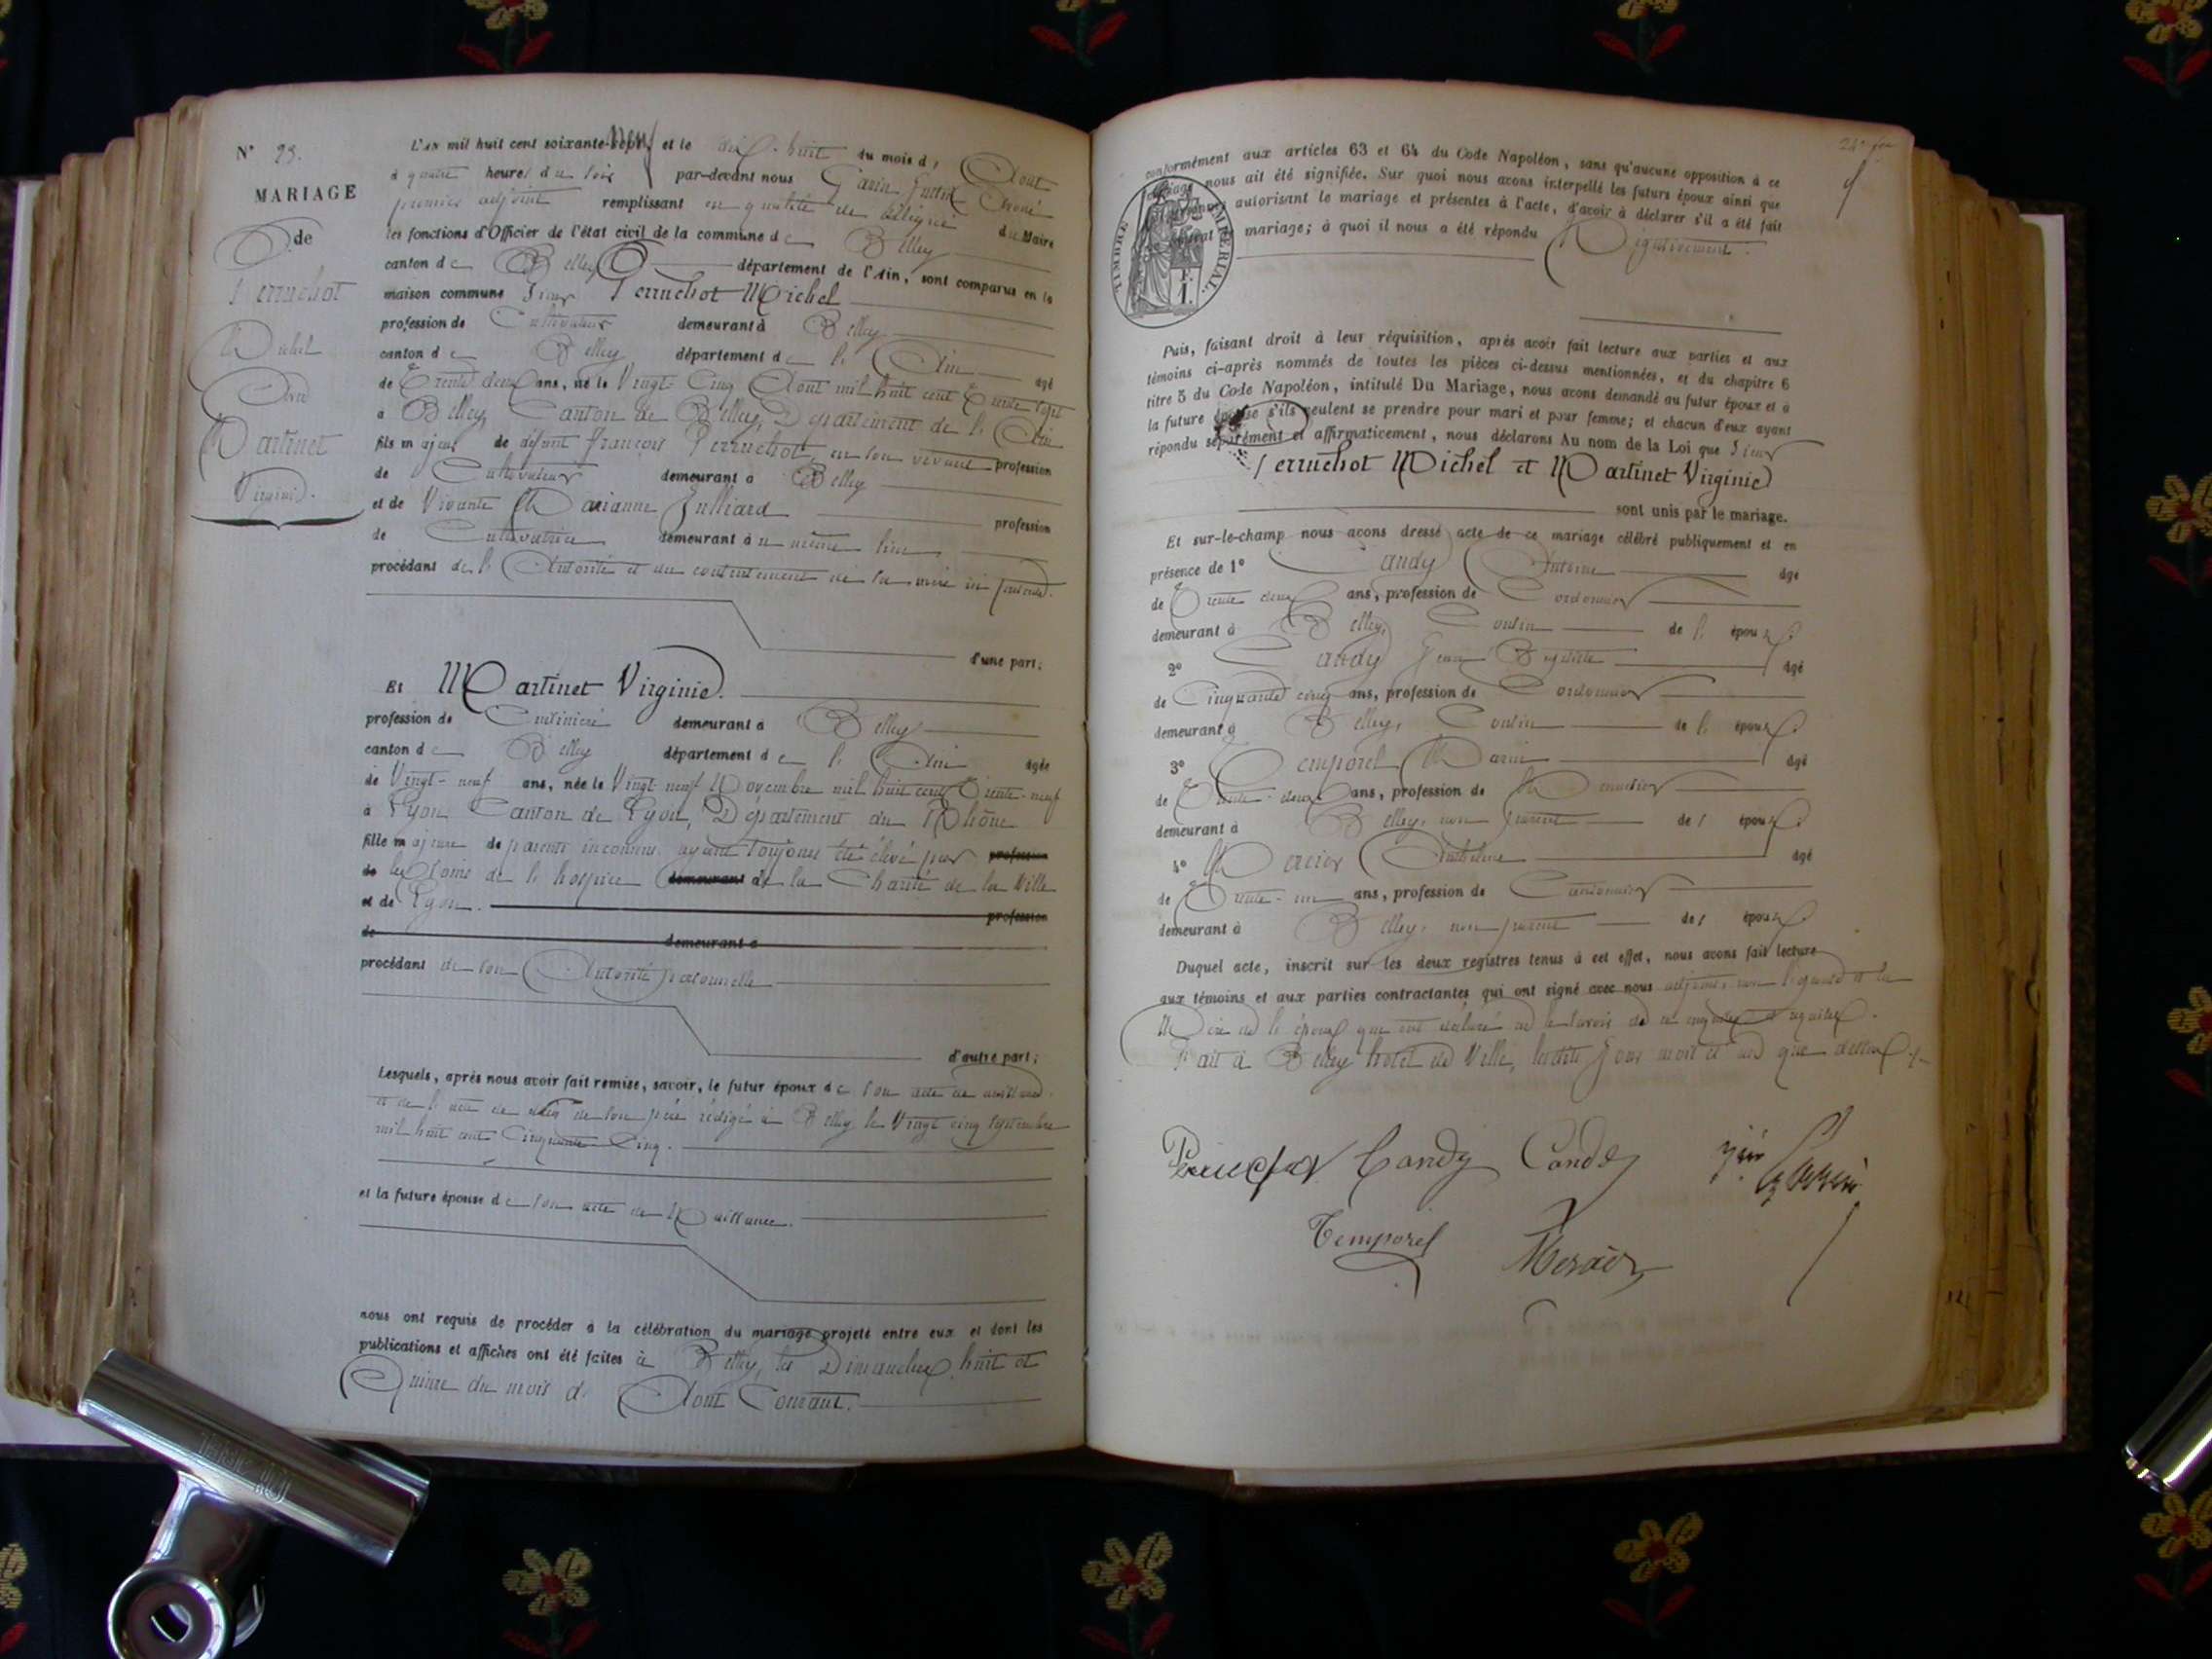 N° 23.
MARIAGE
de
Perruchot
Michel
Avec
Martinet
Virginie.
L'AN mil huit cent soixante-neuf et le dix-huit du mois d' Aout
à quatre heures du soir par-devant nous Garin
premier adjoint remplissant en qualité de délégué du Maire
les fonctions d'Officier de l'état civil de la commune de Belley
canton de Belley département de l'Ain, sont comparus en la
maison commune Sieur Perruchot Michel
profession de Cultivateur demeurant à Belley
canton de Belley département de l'Ain âgé
de Trente deux ans, né le Vingt-Cinq Aout mil huit cent Trente sept
à Belley, Canton de Belley, Département de l'Ain
fils majeur de défunt François Perruchot, en son vivant profession
de Cultivateur demeurant à Belley
et de Vivante Marianne Julliard profession
de Cultivatrice demeurant à u même lieu,
procédant de l'Autorité et du consentement de sa mère ici présente.
d'une part;
Et Martinet Virginie.
profession de Cuisinière demeurant à Belley
canton de Belley département de l'Ain âgée
de Vingt-neuf ans, née le Vingt-neuf Novembre mil huit cent Trente-neuf
à Lyon Canton de Lyon, Département du Rhône
fille majeure de parents inconnus, ayant toujours été élevé par profession
de les soins de l'hospice demeurant de la Charité de la Ville
et de Lyon. profession
de demeurant à
procédant de son Autorité personnelle
d'autre part;
Lesquels, après nous avoir fait remise, savoir, le futur époux de son acte de naissance,
et de l'acte de décès de son père rédigé à Belley le Vingt cinq septembre
mil huit cent Cinquante Cinq.
et la future épouse de son acte de Naissance.
nous ont requis de procéder à la célébration du mariage projeté entre eux et dont les
publications et affiches ont été faites à Belley, les Dimanches huit et
Quinze du mois d'Aout Courant.
24e
conformément aux articles 63 et 64 du Code Napoléon, sans qu'aucune opposition à ce
mariage nous ait été signifiée. Sur quoi nous avons interpellé les futurs époux ainsi que
autorisant le mariage et présentes à l'acte, d'avoir à déclarer s'il a été fait
mariage; à quoi il nous a été répondu Négativement.
TIMBRE IMPÉRIAL
1 F.
Puis, faisant droit à leur réquisition, après avoir fait lecture aux parties et aux
témoins ci-après nommés de toutes les pièces ci-dessus mentionnées, et du chapitre 6
titre 5 du Code Napoléon, intitulé Du Mariage, nous avons demandé au futur époux et à
la future épouse s'ils veulent se prendre pour mari et pour femme; et chacun d'eux ayant
répondu séparément et affirmativement, nous déclarons Au nom de la Loi que Sieur
Perruchot Michel et Martinet Virginie
sont unis par le mariage.
Et sur-le-champ nous avons dressé acte de ce mariage célébré publiquement et en
présence de 1° Candy Antoine âgé
de Trente deux ans, profession de Cordonnier
demeurant à Belley, Cousin de l'époux.
2° Candy Jean Baptiste âgé
de Cinquante cinq ans, profession de Cordonnier
demeurant à Belley, Cousin de l'époux.
3° Temporel Marin âgé
de Trente-deux ans, profession de Menuisier
demeurant à Belley, non parent des époux.
4° Mercier Anthelme âgé
de Trente-un ans, profession de Cantonnier
demeurant à Belley, non parent des époux.
Duquel acte, inscrit sur les deux registres tenus à cet effet, nous avons fait lecture
aux témoins et aux parties contractantes qui ont signé avec nous adjoint, non l'épouse et la
Mère de l'époux qui ont déclaré ne le savoir de ce enquises et requises.
Fait à Belley hotel de Ville, lesdits Jour mois et an que dessus.
Perruchot Candy Candy
Temporel Mercier